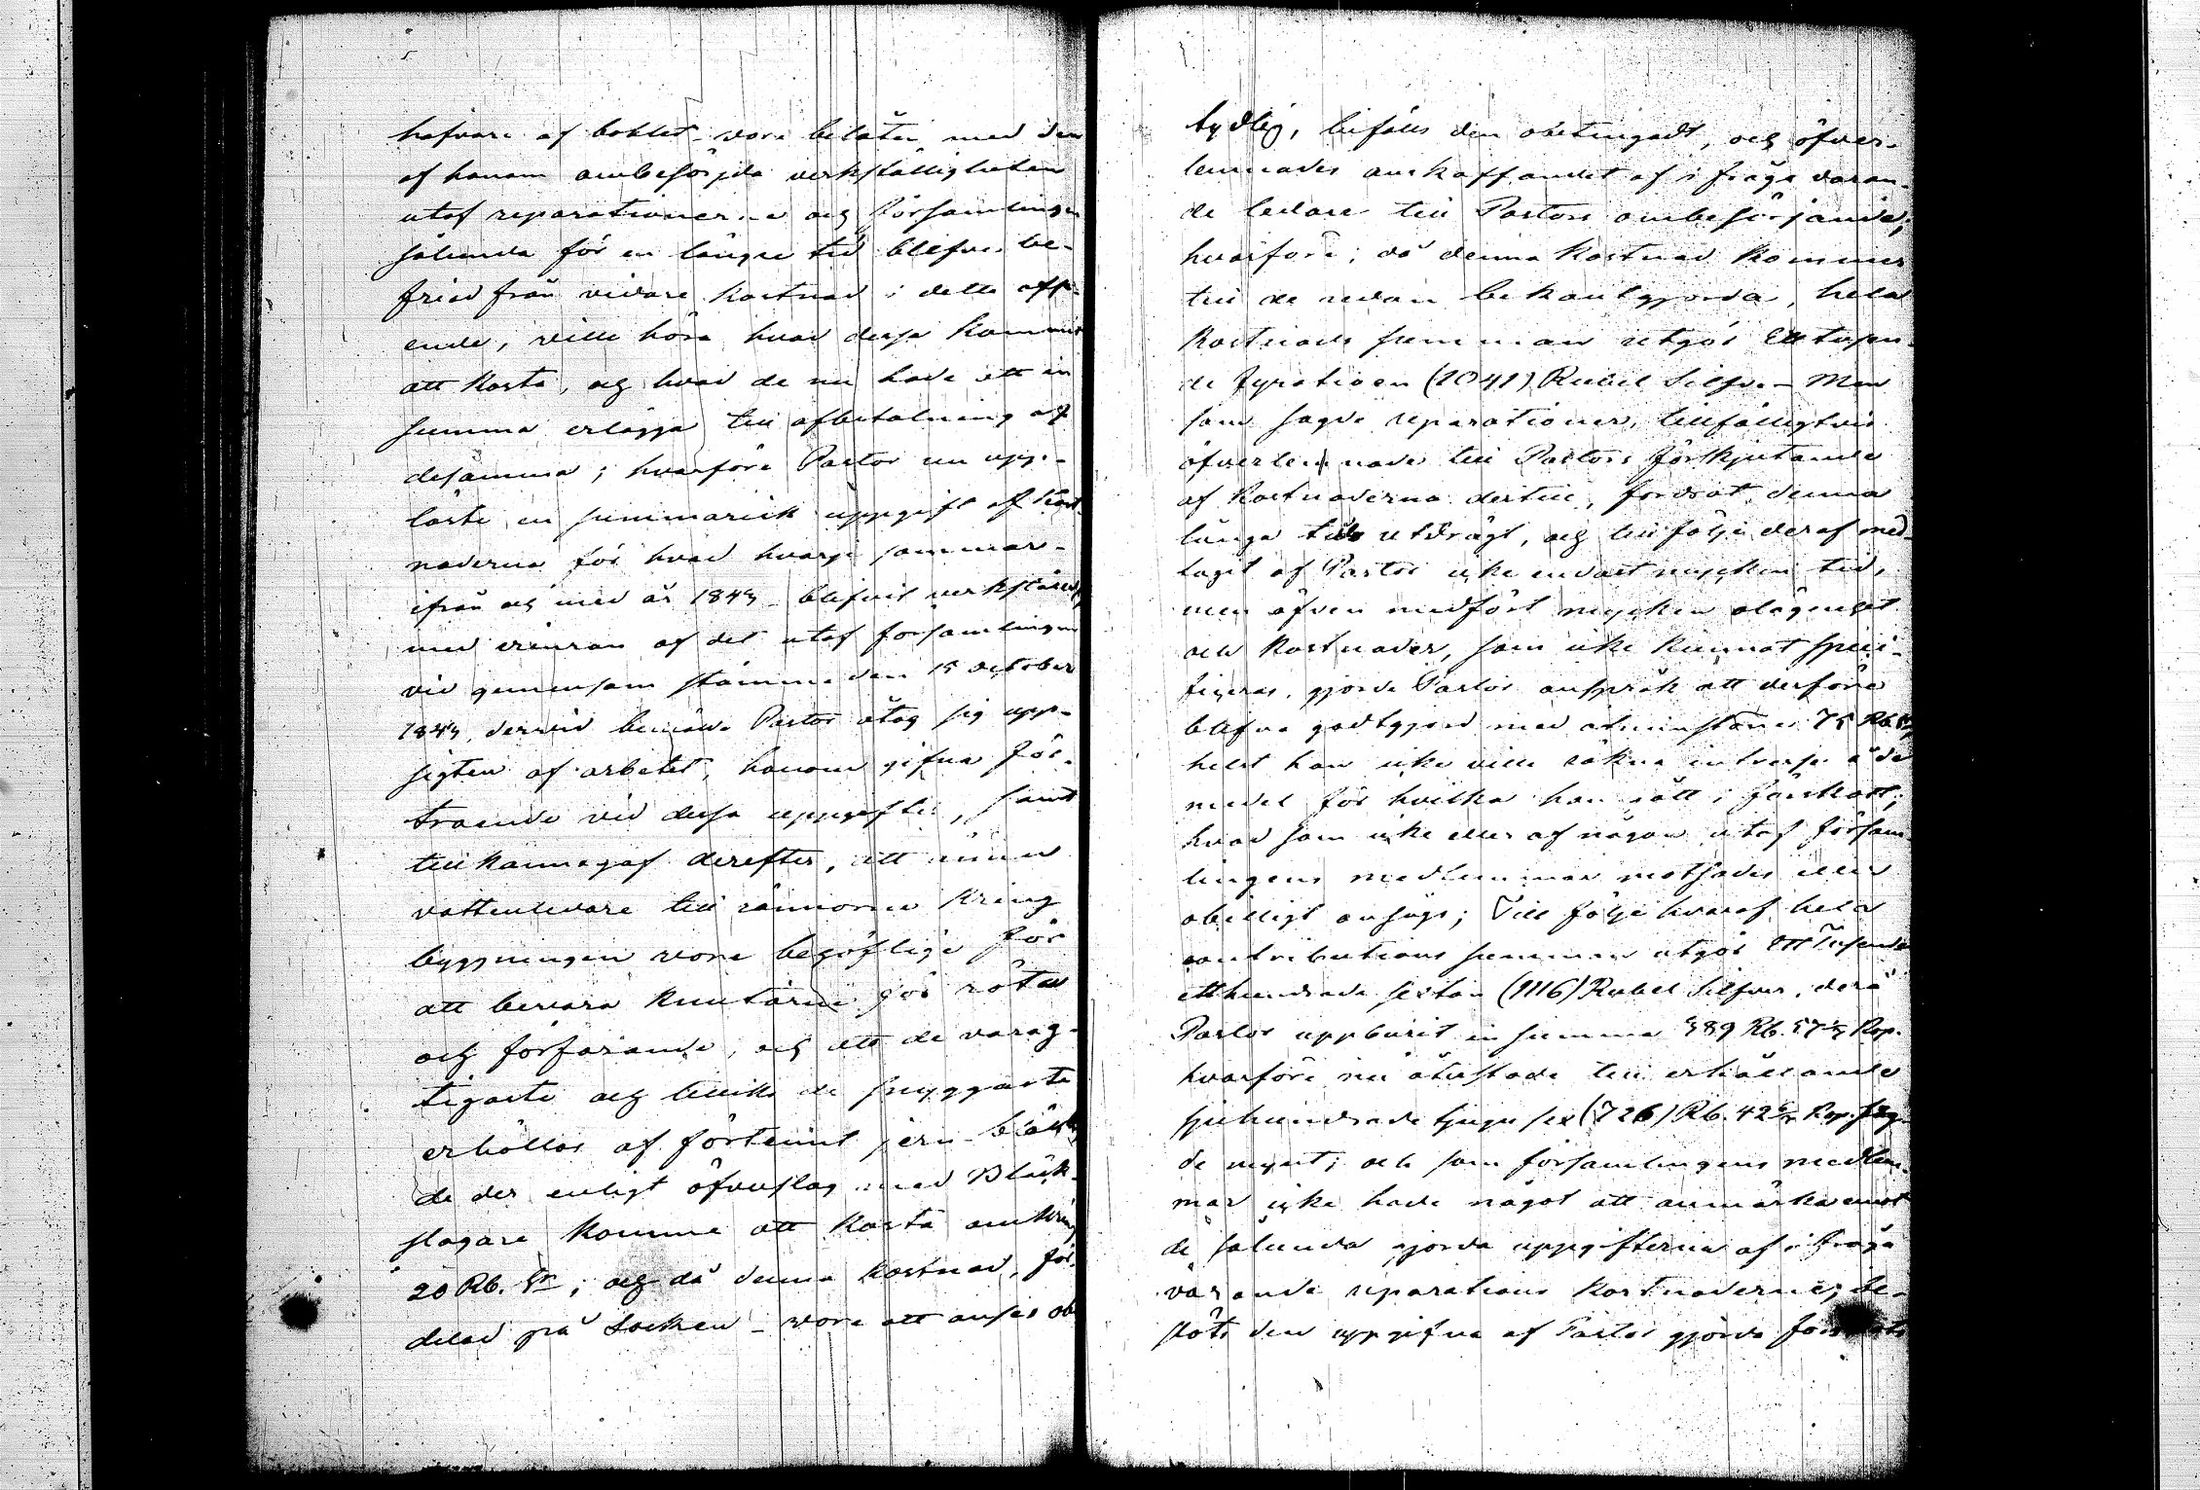 hafvare af bohlet vore belåten med den
af honom ombesörjda verkställigheten
utaf reparationerne och Församlingen
sålunda för en längre tid blefve be-
friad från vidare kostnad i detta afse-
ende, ville höra hvad dessa kommit
att kosta, och hvad de nu hade att in
summa erlägga till afbetalning af
desamma; hvarföre Pastor nu upp-
läste en summarisk uppgift af kost-
naderna för hvad hvarje sommar
ifrån och med år 1843 blifvit verkstäldt,
med erinran af det utaf församlingen
vid gemensam stämma den 15 October
1843, dervid bemälde Pastor åtog sig upp-
sigten af arbetet, honom gifna för-
troende vid dessa uppgifter, samt
tillkännagaf derefter, att
vattenledare till rännorna kring
byggningen vore behöflige för
att bevara knutarne för röta
och förfarande, och att de varag-
tigaste och tillika de snyggaste
erhölles af förtennt jern-bläck,
de der enligt öfverslag med Bläck-
slagare komme att kosta omkring
20 Rb. Sr; och då denna kostnad, för-
delad på Socken - vore att anses obe-
tydlig, bifölls den obetingadt, och öfver-
lemnades anskaffandet af i fråga varan-
de ledare till Pastors ombesörjande;
hvarföre, då denna kostnad kommer
till de redan bekantgjorda, hela
kostnads summan utgör Ett tusen-
de fyratioen (1041) Rubel Silfver - Men
som sagde reparationer, tillfälligtvis
öfverlemnade till Pastors förskjutande
af kostnaderna dertill, fordrat denna
långa tids utdrägt, och till följe deraf med-
tagit af Pastor icke endast mycken tid,
men äfven medfört mycken olägenhet
och kostnader, som icke kunnat speci-
ficeras, gjorde Pastor anspråk att derföre
blifva godtgjord med åtminstone 75 Rb Sr,
helst han icke ville räkna intresse å de
medel för hvilka han stått i förskott;
hvad som icke eller af någon utaf försam-
lingens medlemmar motsades eller
obilligt ansågs; Till följe hvaraf hela
contributions summan utgör Ett Tusende
etthundrade sexton (1116) Rubel Silfver, derå
Pastor uppburit en summa 389 Rb. 57 Kop.
hvarföre nu återstode till erhållande
sjuhundrade tjugu sex (726) Rb. 42 Kop. sag-
de mynt; och som församlingens medlem-
mar icke hade något att anmärka emot
de sålunda gjorda uppgifterna af i fråga
varande reparations kostnaderne; be-
slöts den uppgifna af Pastor gjorda